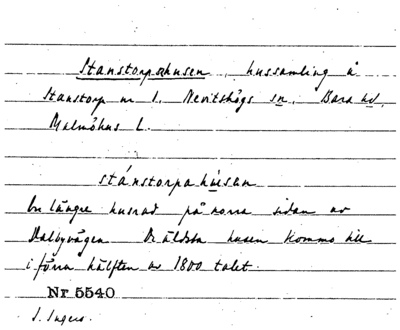 Stanstorpahusen, hussamling å
Stanstorp nr 1. Nevitshögs sn, Bara hd,
Malmöhus L.
stánstorpahúsan
En längre husrad på norra sidan av
Dalbyvägen. De äldsta husen kommo till
i förra hälften av 1800 talet.
Nr 5540
I. Ingers.